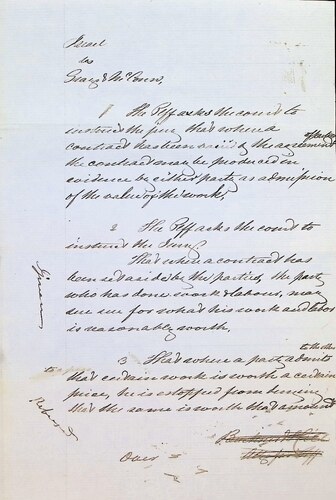 Israel
vs
Gray & McCann,
1 The Pff asks the court to
instruct the jury that where a
contract has been avoided by the agreement of parties
the contract may be produced in
evidence by either party as admission
of the value of the work,
2 The Pff asks the court to
instruct the Jury
That where a contract has
been set aside by the parties, the party
who has done work & labour, may
sue for what his work and labor
is reasonably worth,
Given
3 That where a party admits to the other
that certain work is worth a certain
price, he is estopped from denying
that the same is worth that amount
Refused
Over